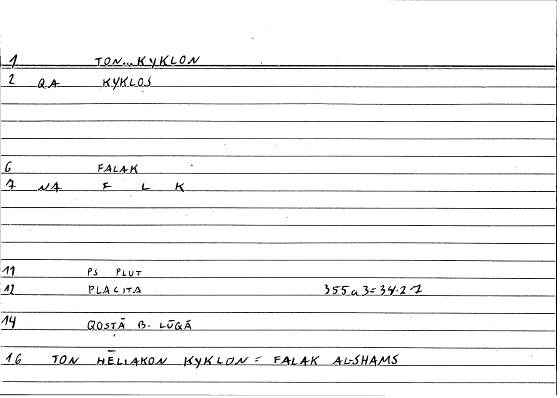 1 TON...KYKLON
2 QA KYKLOS
6 FALAK
7 NA F L K
11 PS PLUT
12 PLACITA 355a3=34.27
14 QOSTĀ B. LŪQĀ
16 TON HĒLIAKON KYKLON = FALAK AL-SHAMS